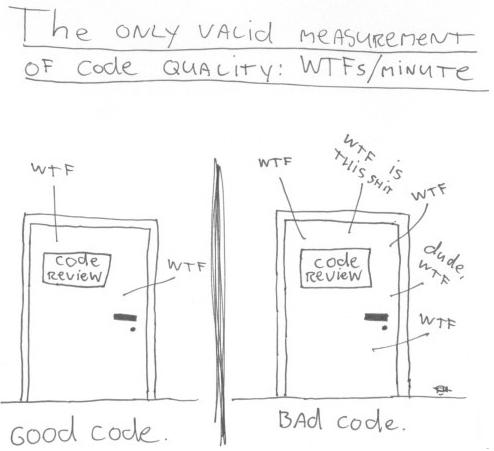 The ONLY VALID MEASUREMENT
OF CODE QUALITY: WTFs/MINUTE
WTF
CODE
REVIEW
WTF
GOOD CODE.
WTF
WTF IS
THIS SHIT
WTF
CODE
REVIEW
dude,
WTF
WTF
BAd CODE.